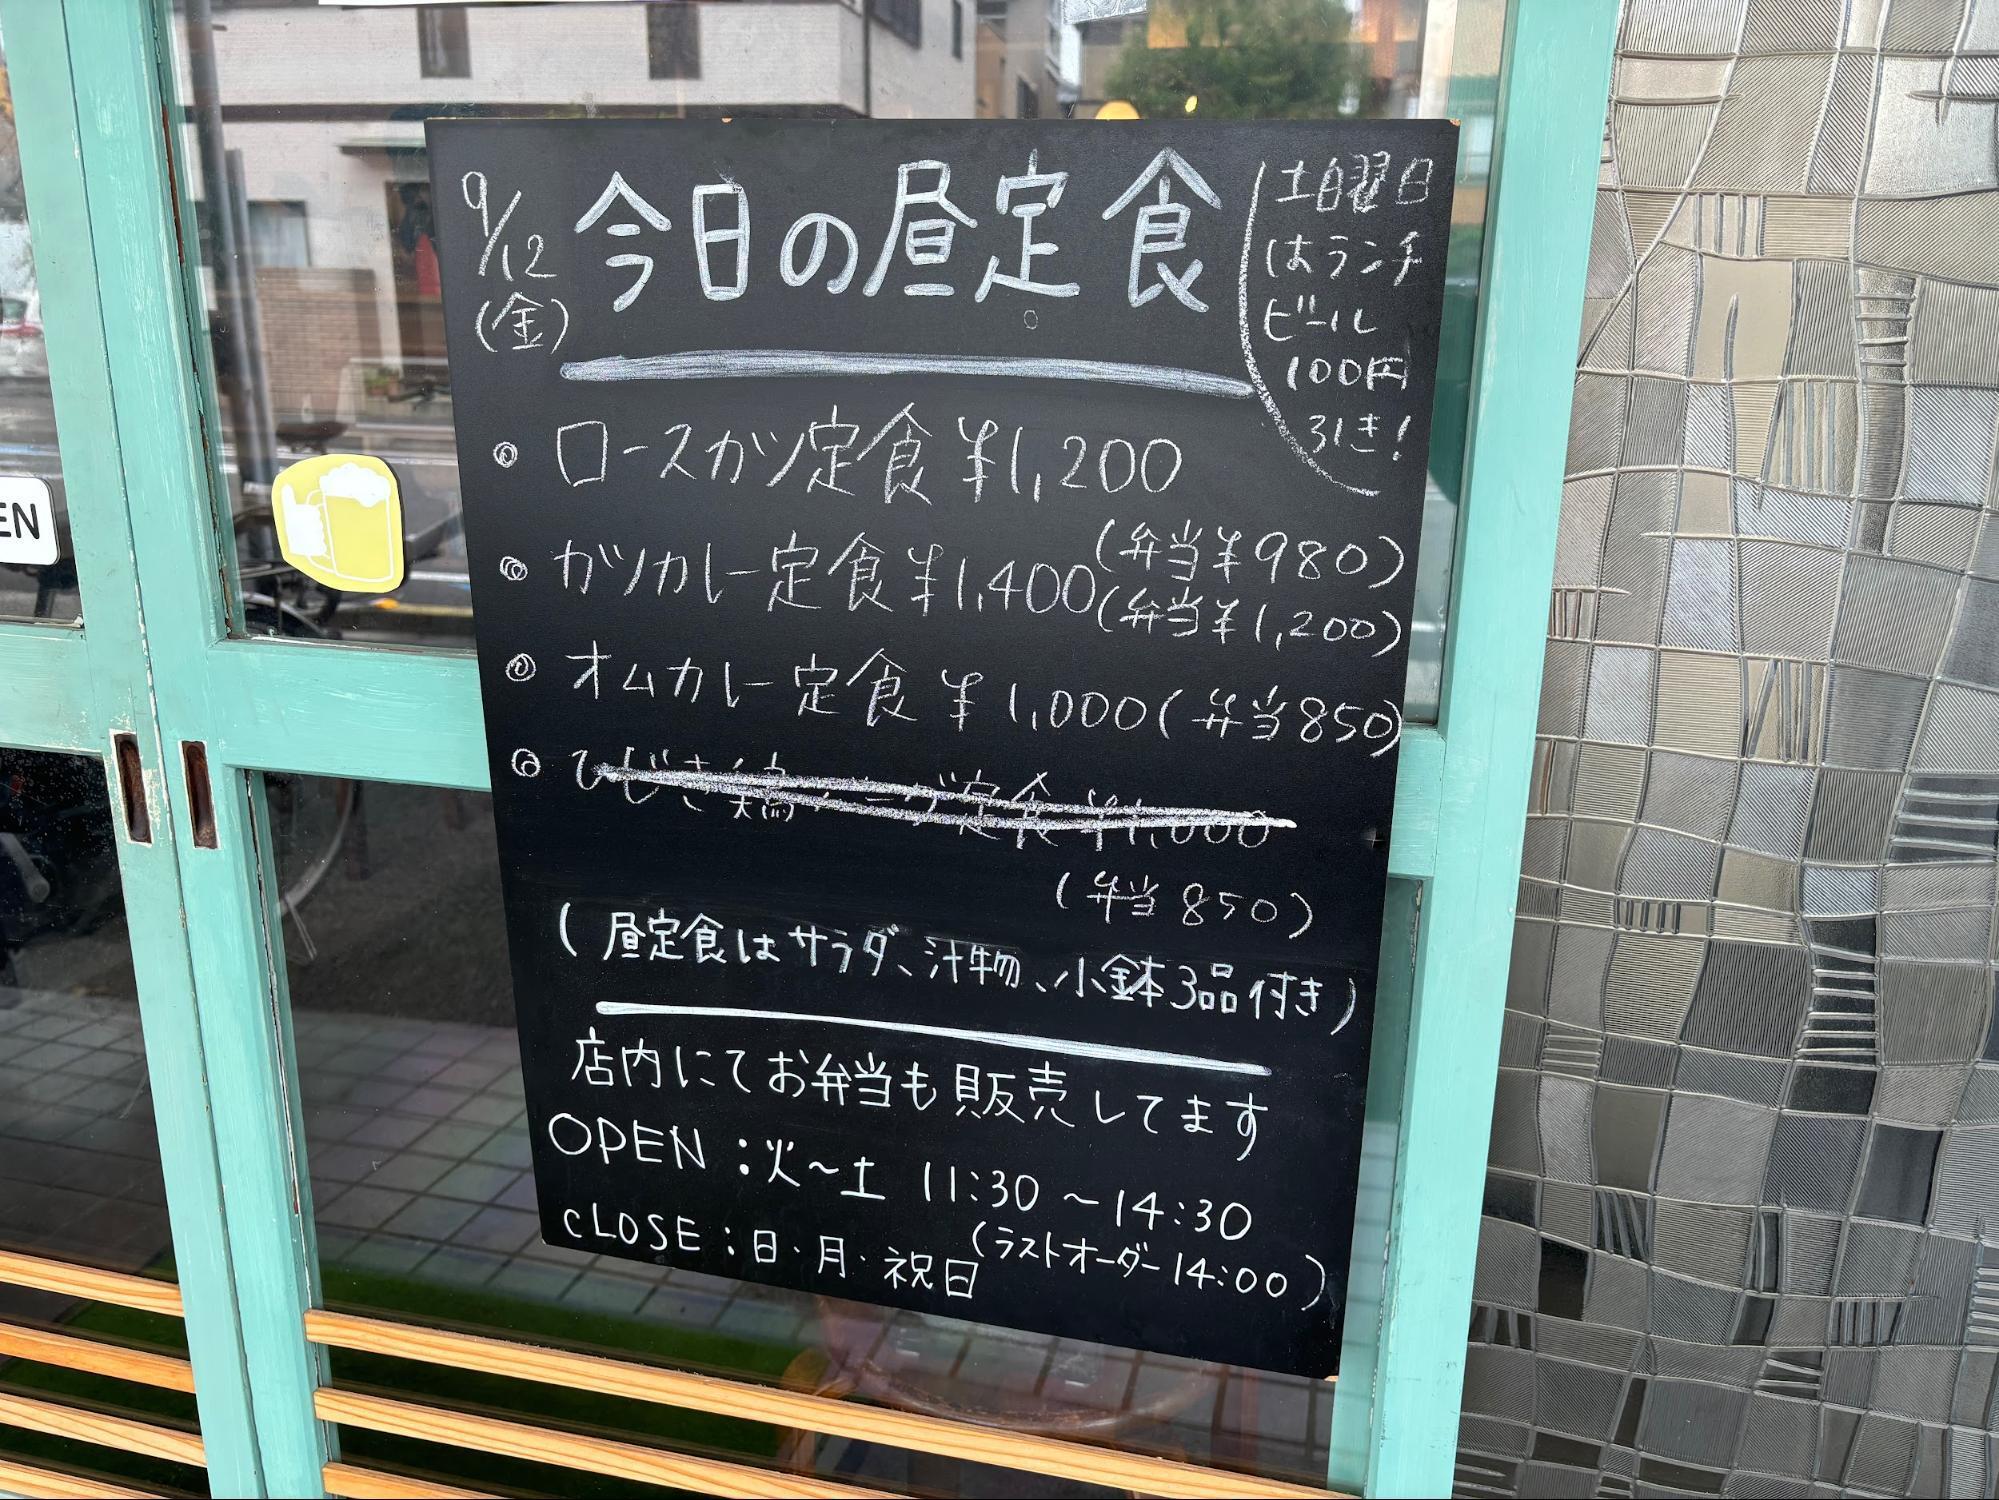 9/12
(金)
今日の昼定食
土曜日
はランチ
ビール
100円
引き!
EN
ロースカツ定食 ¥1,200
(弁当¥980)
カツカレー定食 ¥1,400
(弁当¥1,200)
オムカレー定食 ¥1,000(弁当850)
定食 ¥1,000
(弁当850)
(昼定食はサラダ、汁物、小鉢3品付き)
店内にてお弁当も販売してます
OPEN:火〜土 11:30〜14:30
(ラストオーダー14:00)
CLOSE:日・月・祝日